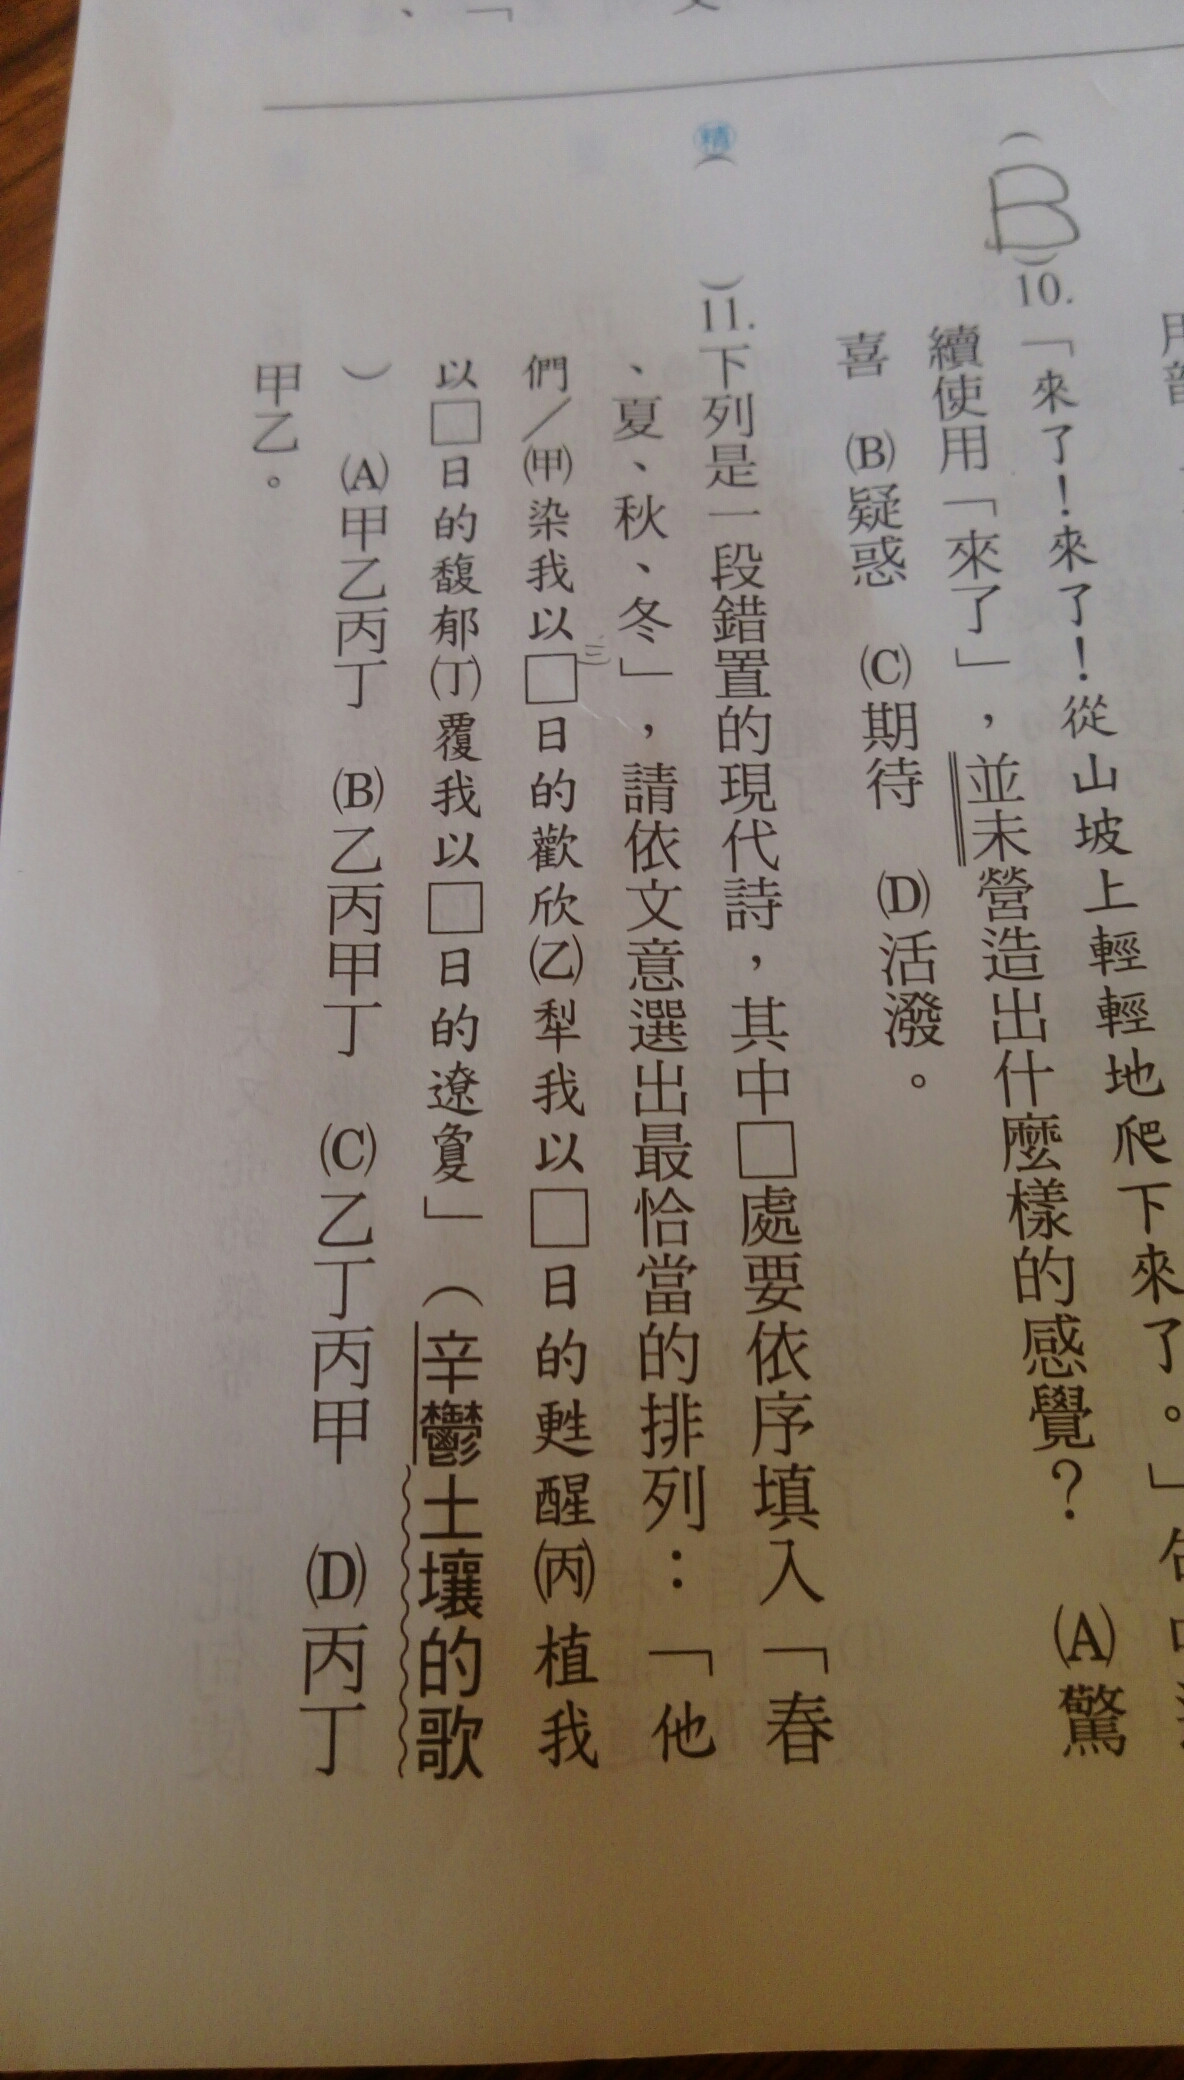 (B)10.「來了!來了!從山坡上輕輕地爬下來了。」
續使用「來了」,並未營造出什麼樣的感覺? (A)驚
喜 (B)疑惑 (C)期待 (D)活潑。
精( )11.下列是一段錯置的現代詩,其中□處要依序填入「春
、夏、秋、冬」,請依文意選出最恰當的排列:「他
們/(甲)染我以□日的歡欣(乙)犁我以□日的甦醒(丙)植我
以□日的馥郁(丁)覆我以□日的遼敻」(辛鬱土壤的歌
) (A)甲乙丙丁 (B)乙丙甲丁 (C)乙丁丙甲 (D)丙丁
甲乙。